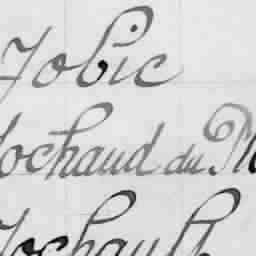 Jobic
Jochaud du
Jochault